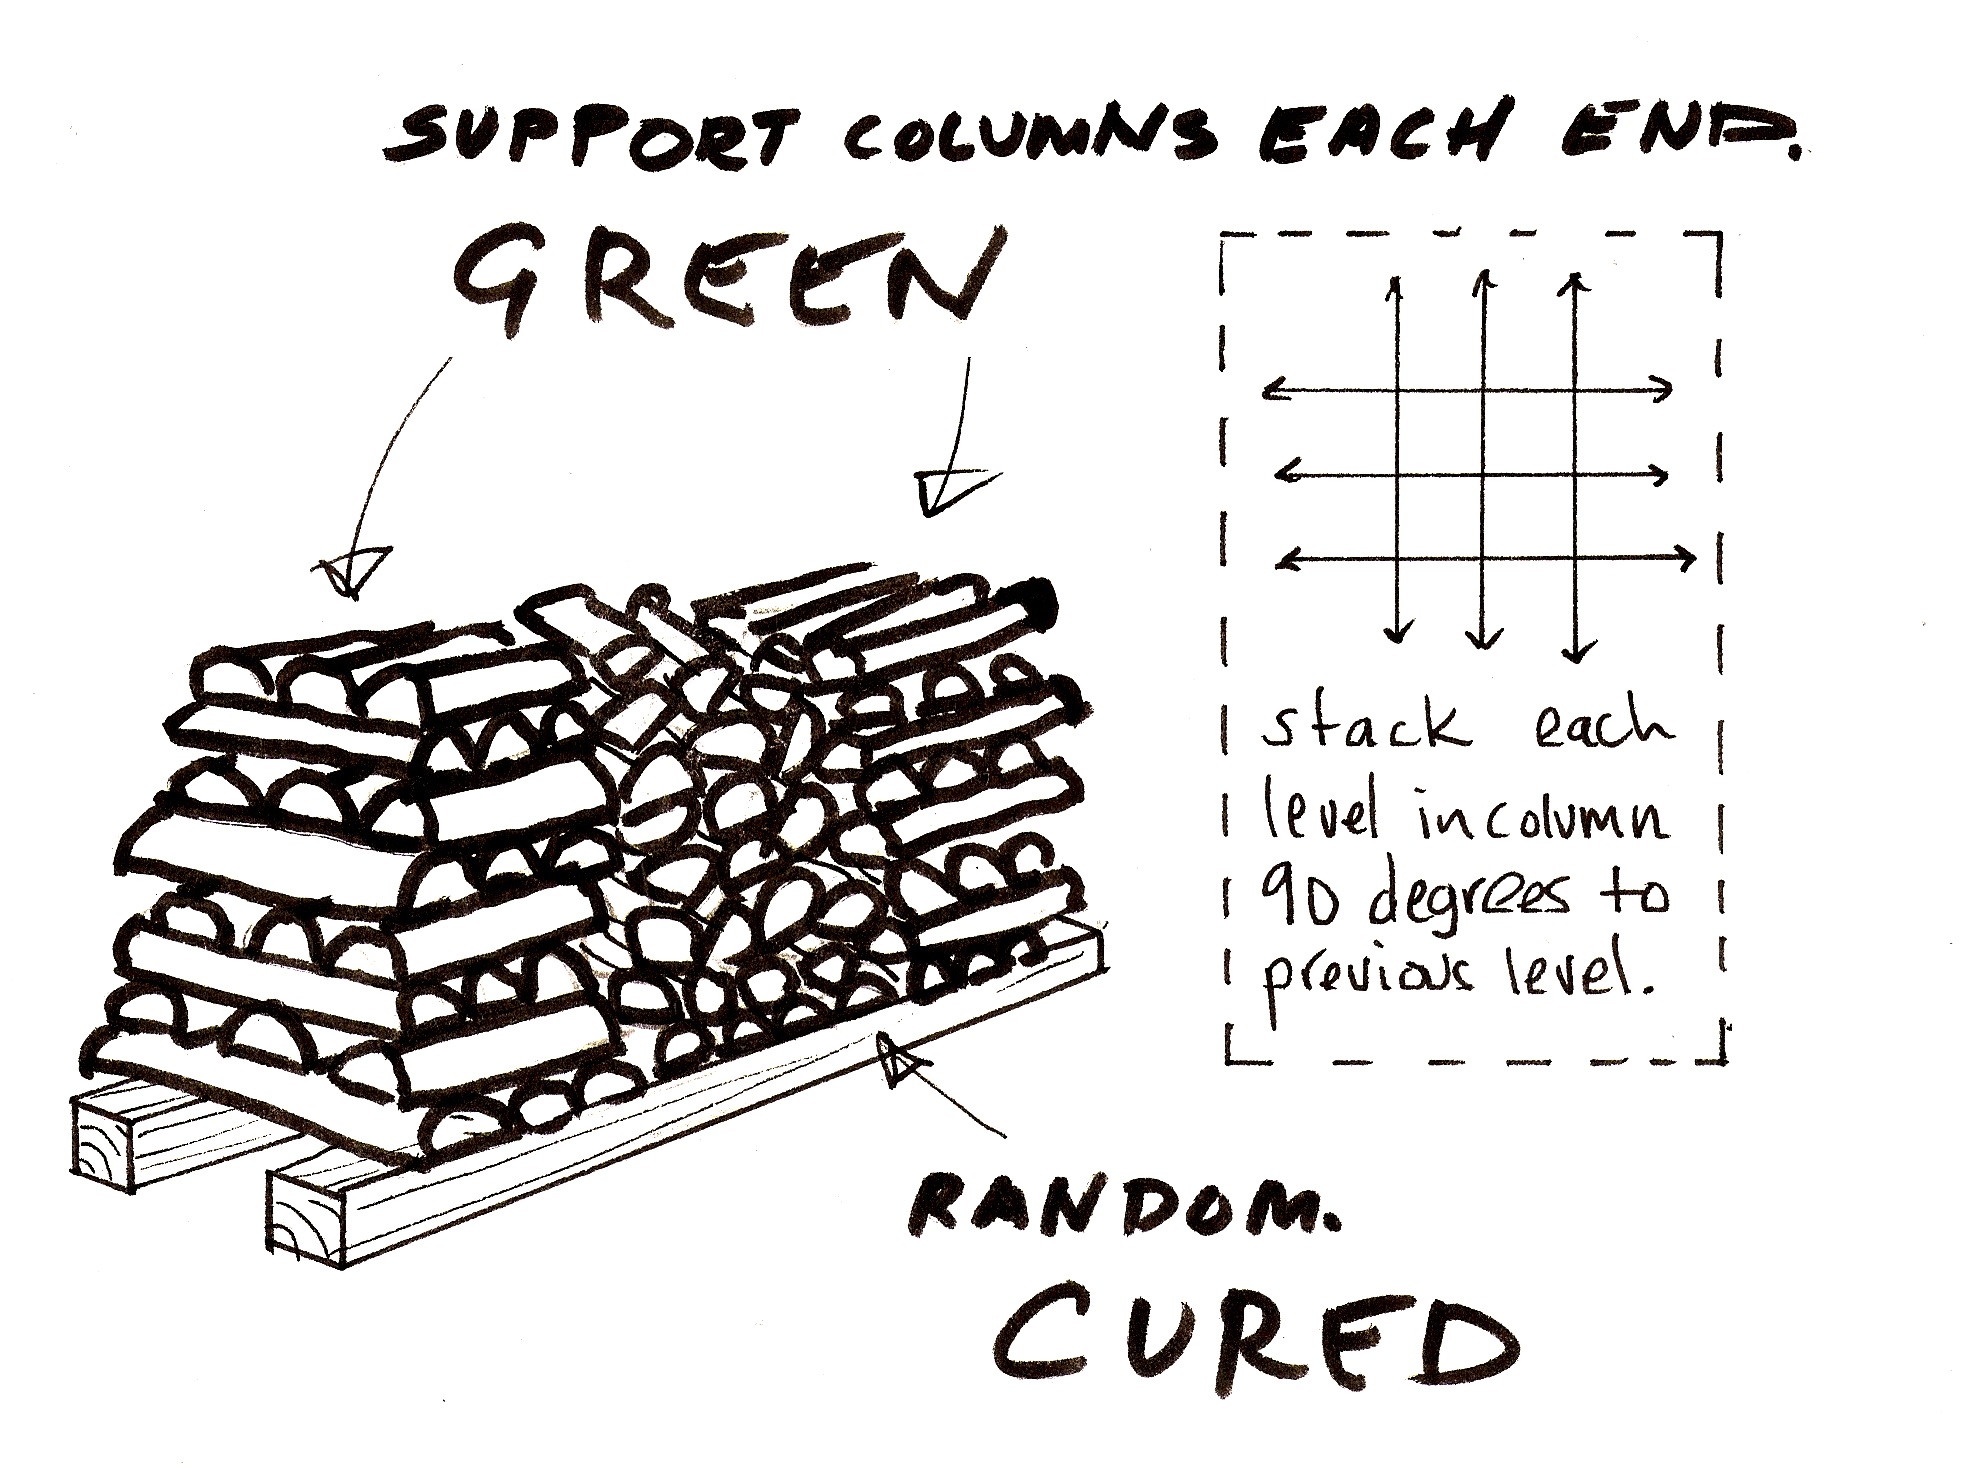 SUPPORT COLUMNS EACH END.
GREEN
stack each
level in column
90 degrees to
previous level.
RANDOM.
CURED